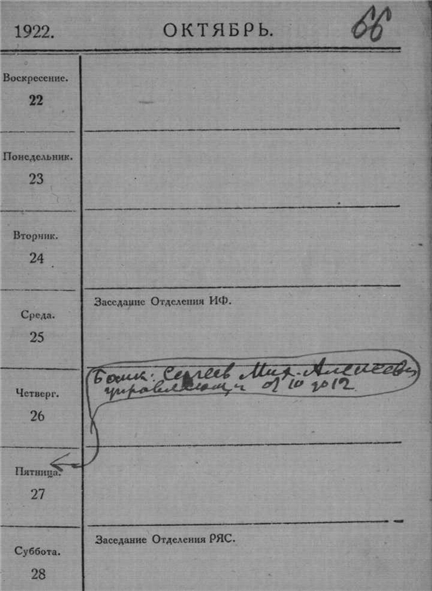 1922.
ОКТЯБРЬ.
66
Воскресение.
22
Понедельник.
23
Вторник.
24
Среда.
25
Заседание Отделения ИФ.
Банк: Сергеев Мих. Алексеевич
управляющ
Четверг.
26
Пятница.
27
Суббота.
28
Заседание Отделения РЯС.